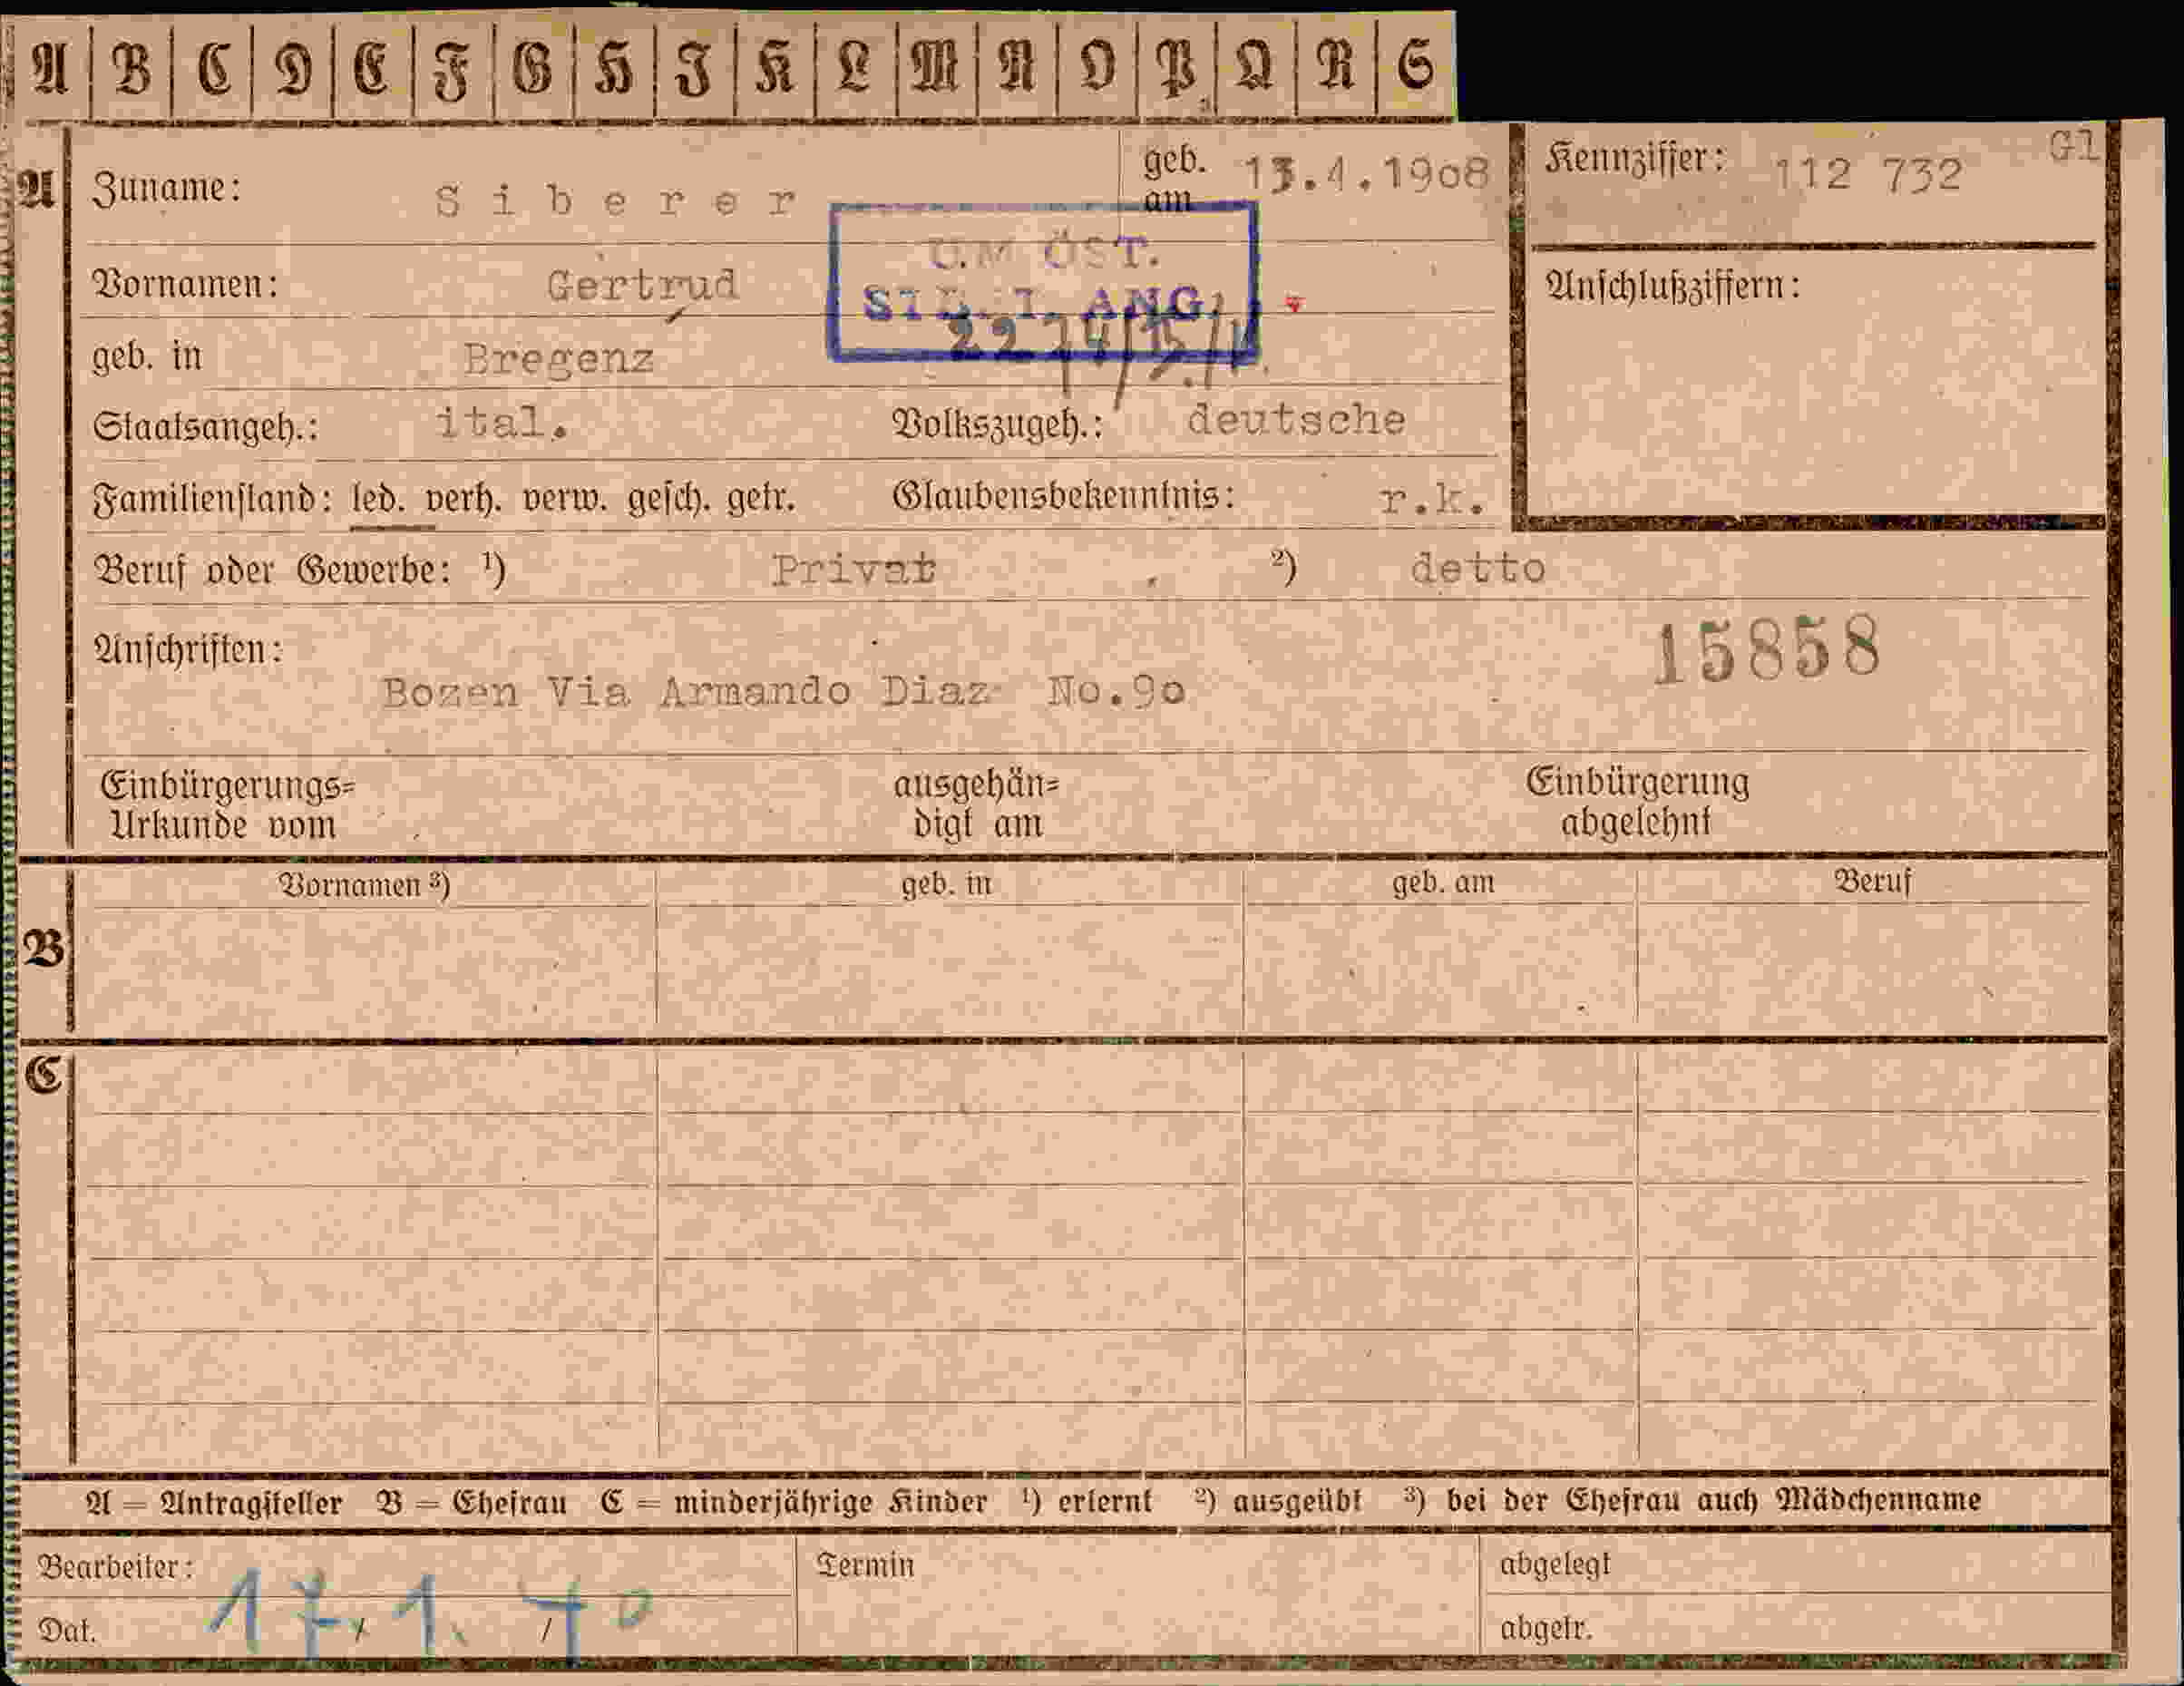 A B C D E F G H I K L M N O P Q R S
A
Zuname: Siberer
geb. am 13.4.1908
Kennziffer: 112 732
Gl
U.M ÖST.
Vornamen: Gertrud
ANG.
Anschlußziffern:
geb. in Bregenz
Staatsangeh.: ital. Volkszugeh.: deutsche
Familienstand: led. verh. verw. gesch. getr. Glaubensbekenntnis: r.k.
Beruf oder Gewerbe: ¹) Privat ²) detto
Anschriften: 15858
Bozen Via Armando Diaz No.90
Einbürgerungs= ausgehän= Einbürgerung
Urkunde vom digt am abgelehnt
Vornamen ³) geb. in geb. am Beruf
B
C
A = Antragsteller B = Ehefrau C = minderjährige Kinder ¹) erlernt ²) ausgeübt ³) bei der Ehefrau auch Mädchenname
Bearbeiter: Termin abgelegt
Dat. 17. 1. 40 abgetr.